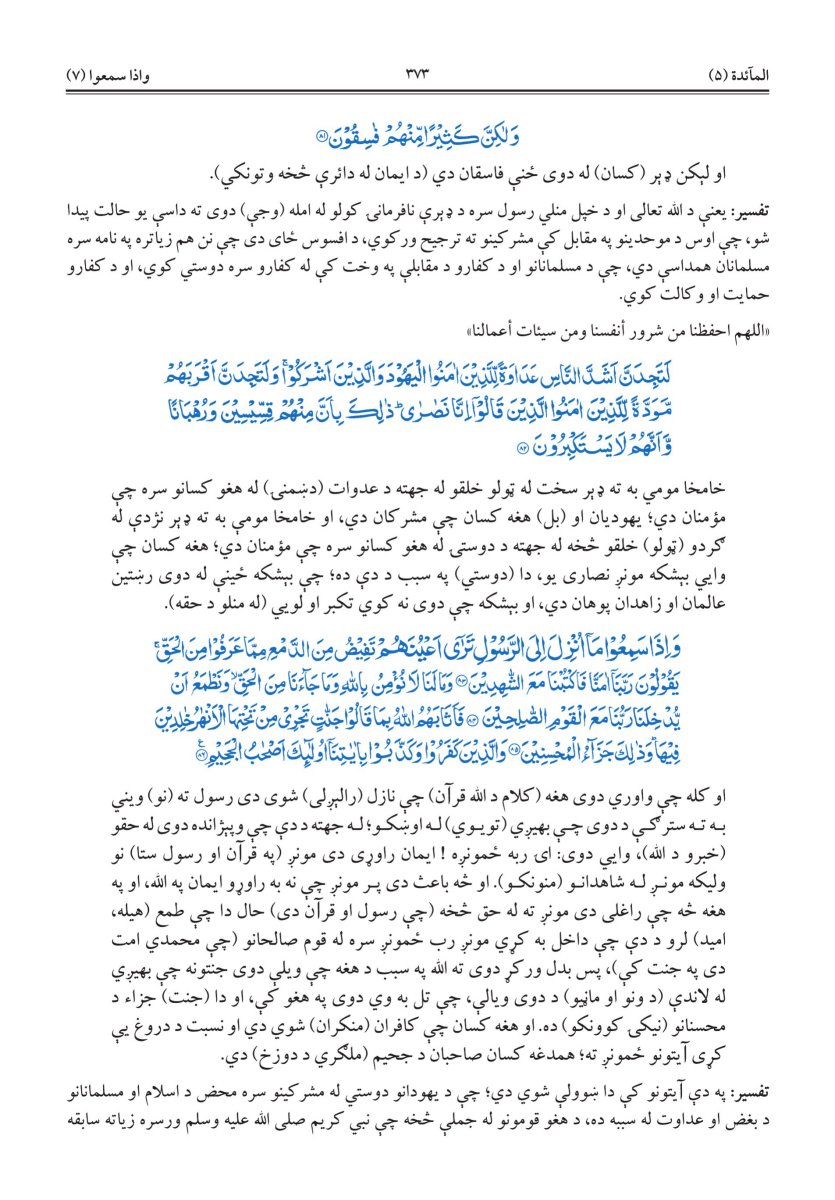 المآئدة (۵) ۳۷۳ واذا سمعوا (۷)
وَلٰكِنَّ كَثِيْرًا مِّنْهُمْ فٰسِقُوْنَ ﴿۸۱﴾
او لېکن ډېر (کسان) له دوی ځنې فاسقان دي (د ایمان له دائرې څخه وتونکي).
تفسیر: یعنې د الله تعالی او د خپل منلي رسول سره د ډېرې نافرمانۍ کولو له امله (وجې) دوی ته داسې یو حالت پیدا
شو، چې اوس د موحدینو په مقابل کې مشرکینو ته ترجیح ورکوي، د افسوس ځای دی چې نن هم زیاتره په نامه سره
مسلمانان همداسې دي، چې د مسلمانانو او د کفارو د مقابلې په وخت کې له کفارو سره دوستي کوي، او د کفارو
حمایت او وکالت کوي.
«اللهم احفظنا من شرور أنفسنا ومن سیئات أعمالنا»
لَتَجِدَنَّ اَشَدَّ النَّاسِ عَدَاوَةً لِّلَّذِيْنَ اٰمَنُوا الْيَهُوْدَ وَالَّذِيْنَ اَشْرَكُوْا ۚ وَلَتَجِدَنَّ اَقْرَبَهُمْ
مَّوَدَّةً لِّلَّذِيْنَ اٰمَنُوا الَّذِيْنَ قَالُوْٓا اِنَّا نَصٰرٰى ؕ ذٰلِكَ بِاَنَّ مِنْهُمْ قِسِّيْسِيْنَ وَرُهْبَانًا
وَّاَنَّهُمْ لَا يَسْتَكْبِرُوْنَ ﴿۸۲﴾
خامخا مومي به ته ډېر سخت له ټولو خلقو له جهته د عدوات (دښمنۍ) له هغو کسانو سره چې
مؤمنان دي؛ یهودیان او (بل) هغه کسان چې مشرکان دي، او خامخا مومې به ته ډېر نژدې له
ګردو (ټولو) خلقو څخه له جهته د دوستۍ له هغو کسانو سره چې مؤمنان دي؛ هغه کسان چې
وایي بېشکه مونږ نصاری یو، دا (دوستي) په سبب د دې ده؛ چې بېشکه ځینې له دوی رښتین
عالمان او زاهدان پوهان دي، او بېشکه چې دوی نه کوي تکبر او لویي (له منلو د حقه).
وَاِذَا سَمِعُوْا مَآ اُنْزِلَ اِلَى الرَّسُوْلِ تَرٰٓى اَعْيُنَهُمْ تَفِيْضُ مِنَ الدَّمْعِ مِمَّا عَرَفُوْا مِنَ الْحَقِّ ۚ
يَقُوْلُوْنَ رَبَّنَآ اٰمَنَّا فَاكْتُبْنَا مَعَ الشّٰهِدِيْنَ ﴿۸۳﴾ وَمَا لَنَا لَا نُؤْمِنُ بِاللّٰهِ وَمَا جَآءَنَا مِنَ الْحَقِّ ۙ وَنَطْمَعُ اَنْ
يُّدْخِلَنَا رَبُّنَا مَعَ الْقَوْمِ الصّٰلِحِيْنَ ﴿۸۴﴾ فَاَثَابَهُمُ اللّٰهُ بِمَا قَالُوْا جَنّٰتٍ تَجْرِيْ مِنْ تَحْتِهَا الْاَنْهٰرُ خٰلِدِيْنَ
فِيْهَا ؕ وَذٰلِكَ جَزَآءُ الْمُحْسِنِيْنَ ﴿۸۵﴾ وَالَّذِيْنَ كَفَرُوْا وَكَذَّبُوْا بِاٰيٰتِنَآ اُولٰٓئِكَ اَصْحٰبُ الْجَحِيْمِ ﴿۸۶﴾
او کله چې واوري دوی هغه (کلام د الله قرآن) چې نازل (رالېږلی) شوی دی رسول ته (نو) وینې
به ته سترګې د دوی چې بهیږي (تویوي) له اوښکو؛ له جهته د دې چې وپېژانده دوی له حقو
(خبرو د الله)، وایي دوی: ای ربه ځمونږه ! ایمان راوړی دی مونږ (په قرآن او رسول ستا) نو
ولیکه مونږ له شاهدانو (منونکو). او څه باعث دی پر مونږ چې نه به راوړو ایمان په الله، او په
هغه څه چې راغلی دی مونږ ته له حق څخه (چې رسول او قرآن دی) حال دا چې طمع (هیله،
امید) لرو د دې چې داخل به کړي مونږ رب ځمونږ سره له قوم صالحانو (چې محمدي امت
دی په جنت کې)، پس بدل ورکړ دوی ته الله په سبب د هغه چې ویلې دوی جنتونه چې بهیږي
له لاندې (د ونو او ماڼیو) د دوی ویالې، چې تل به وي دوی په هغو کې، او دا (جنت) جزاء د
محسنانو (نیکۍ کوونکو) ده. او هغه کسان چې کافران (منکران) شوي دي او نسبت د دروغ یې
کړی آیتونو ځمونږ ته؛ همدغه کسان صاحبان د جحیم (ملګري د دوزخ) دي.
تفسیر: په دې آیتونو کې دا ښوولې شوي دي؛ چې د یهودانو دوستي له مشرکینو سره محض د اسلام او مسلمانانو
د بغض او عداوت له سببه ده، د هغو قومونو له جملې څخه چې نبي کریم صلی الله علیه وسلم ورسره زیاته سابقه